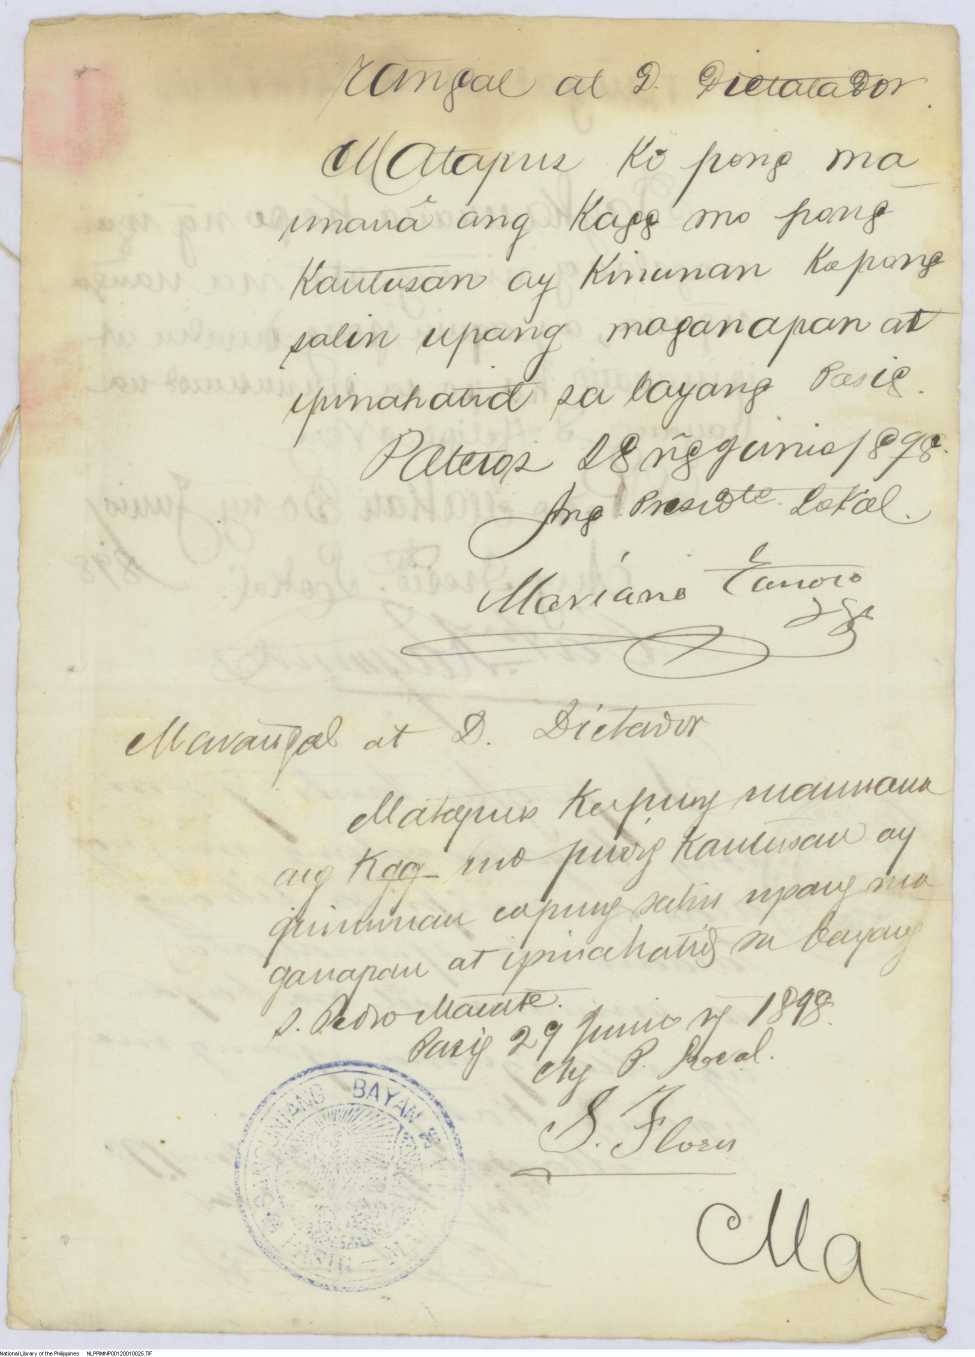 rangal at D. Dictatador.
Matapus ko pong ma
unauá ang Kagg mo pong
Kautusan ay Kinunan Kopong
salin upang maganapan at
ipinahatid sa bayang Pasig.
Pateros 28 ng junio 1898.
Ang Presidte. Lokal.
Mariano
Marangal at D. Dictador
Matapus Ko pung maunaua
ang Kgg. mo pung Kautusan ay
quinunan copung salin upang ma
ganapan at ipinahatid sa bayang
S. Pedro Macate.
Pasig 29 Junio ng 1898.
Ang P. Local.
S. Flores
BAYAN
PASIG
Ma
National Library of the Philippines NLPPIMNP00120010025.TIF